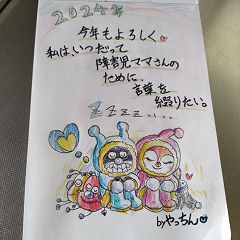 2024年
今年もよろしく♥
私はいつだって
障害児ママさんの
ために、
言葉を
綴りたい。
ZZZZ.....
byやっちん♥